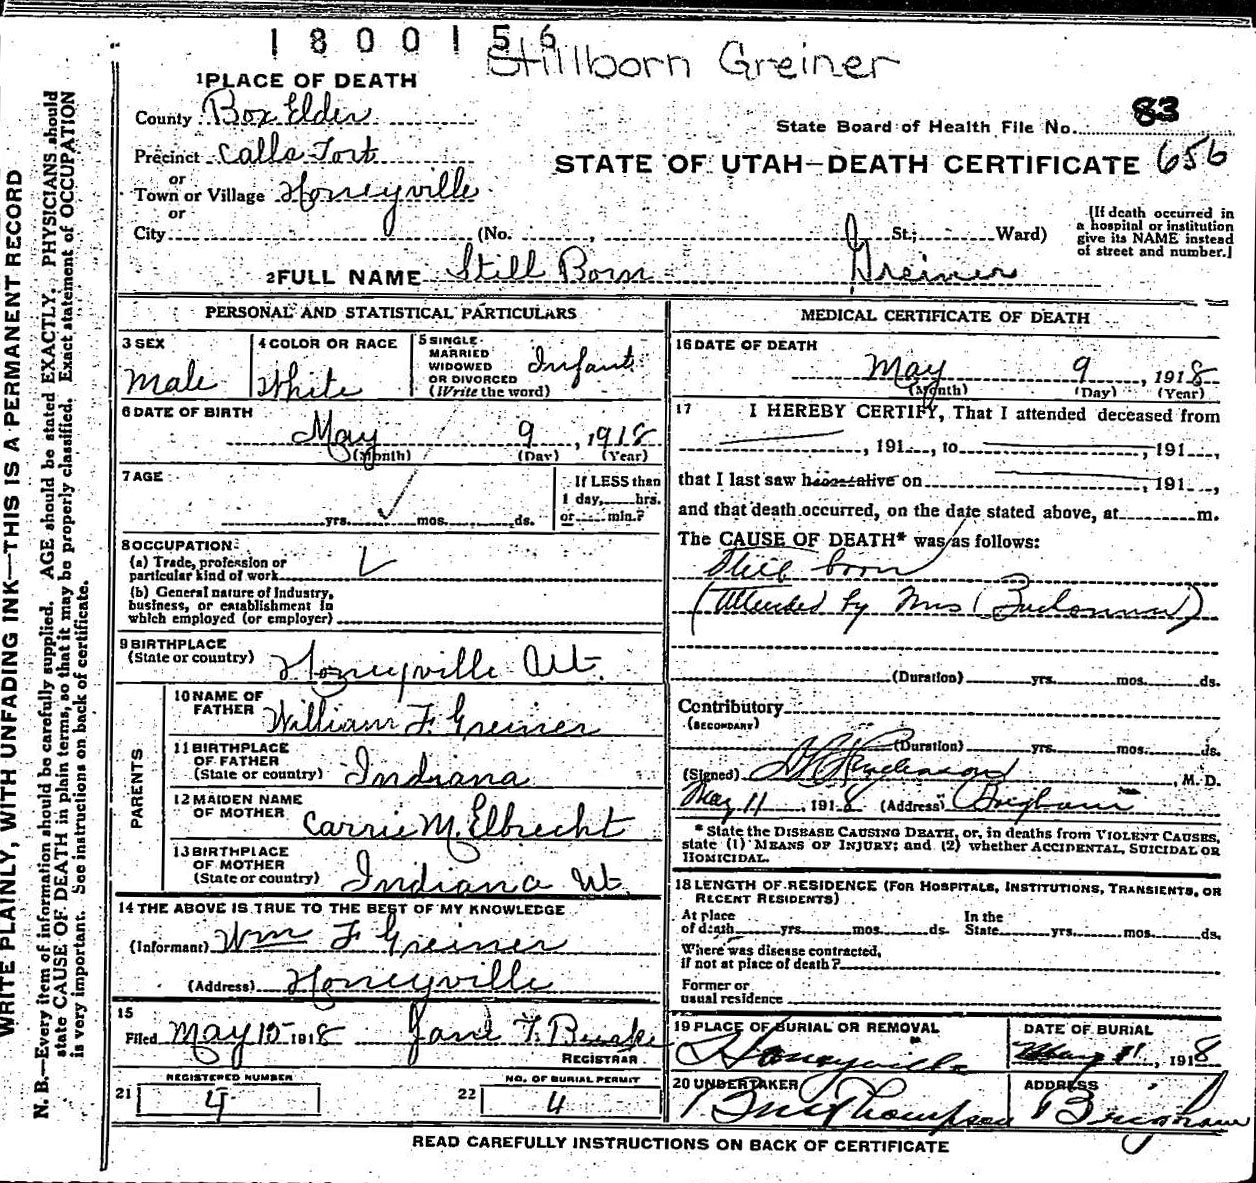 1800156
Stillborn Greiner
1 PLACE OF DEATH
County Box Elder
83
State Board of Health File No.
Precinct Calls Fort
STATE OF UTAH—DEATH CERTIFICATE 656
or
Town or Village Honeyville
or
City (No. , St; Ward)
[If death occurred in
a hospital or institution
give its NAME instead
of street and number.]
2 FULL NAME Still Born Greiner
PERSONAL AND STATISTICAL PARTICULARS
3 SEX
Male
4 COLOR OR RACE
White
5 SINGLE
MARRIED
WIDOWED
OR DIVORCED
(Write the word)
Infant
6 DATE OF BIRTH
May 9, 1918
(Month) (Day) (Year)
7 AGE
yrs. mos. ds.
If LESS than
1 day, hrs.
or min.?
8 OCCUPATION
(a) Trade, profession or
particular kind of work
(b) General nature of Industry,
business, or establishment in
which employed (or employer)
9 BIRTHPLACE
(State or country) Honeyville Ut.
PARENTS
10 NAME OF
FATHER William F. Greiner
11 BIRTHPLACE
OF FATHER
(State or country) Indiana
12 MAIDEN NAME
OF MOTHER Carrie M. Elbrecht
13 BIRTHPLACE
OF MOTHER
(State or country) Indiana Ut.
14 THE ABOVE IS TRUE TO THE BEST OF MY KNOWLEDGE
(Informant) Wm F Greiner
(Address) Honeyville
15
Filed May 15 1918 Jane F. Burke
REGISTRAR
REGISTERED NUMBER
21 4
NO. OF BURIAL PERMIT
22 4
MEDICAL CERTIFICATE OF DEATH
16 DATE OF DEATH
May 9, 1918
(Month) (Day) (Year)
17 I HEREBY CERTIFY, That I attended deceased from
, 191 , to , 191 ,
that I last saw h alive on , 191 ,
and that death occurred, on the date stated above, at m.
The CAUSE OF DEATH* was as follows:
Still born
(Attended by Mrs )
(Duration) yrs. mos. ds.
Contributory
(SECONDARY)
(Duration) yrs. mos. ds.
(Signed) , M. D.
May 11, 1918 (Address) Brigham
* State the DISEASE CAUSING DEATH, or, in deaths from VIOLENT CAUSES,
state (1) MEANS OF INJURY; and (2) whether ACCIDENTAL, SUICIDAL OR
HOMICIDAL.
18 LENGTH OF RESIDENCE (FOR HOSPITALS, INSTITUTIONS, TRANSIENTS, OR
RECENT RESIDENTS)
At place
of death yrs. mos. ds.
In the
State yrs. mos. ds.
Where was disease contracted,
if not at place of death?
Former or
usual residence
19 PLACE OF BURIAL OR REMOVAL
Honeyville
DATE OF BURIAL
May 11, 1918
20 UNDERTAKER
Thompson
ADDRESS
Brigham
READ CAREFULLY INSTRUCTIONS ON BACK OF CERTIFICATE
WRITE PLAINLY, WITH UNFADING INK—THIS IS A PERMANENT RECORD
N. B.—Every item of information should be carefully supplied. AGE should be stated EXACTLY. PHYSICIANS should
state CAUSE OF DEATH in plain terms, so that it may be properly classified. Exact statement of OCCUPATION
is very important. See instructions on back of certificate.